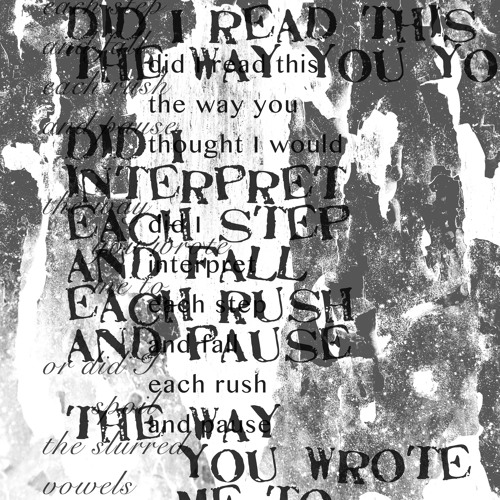 DID I READ THIS
THE WAY YOU YO
DID I
INTERPRET
EACH STEP
AND FALL
EACH RUSH
AND PAUSE
THE WAY
YOU WROTE
ME TO
did I read this
the way you
thought I would
did I
interpret
each step
and fall
each rush
and pause
each step
and fall
each rush
and pause
the way
you wrote
me to
or did I
spoil
the slurred
vowels